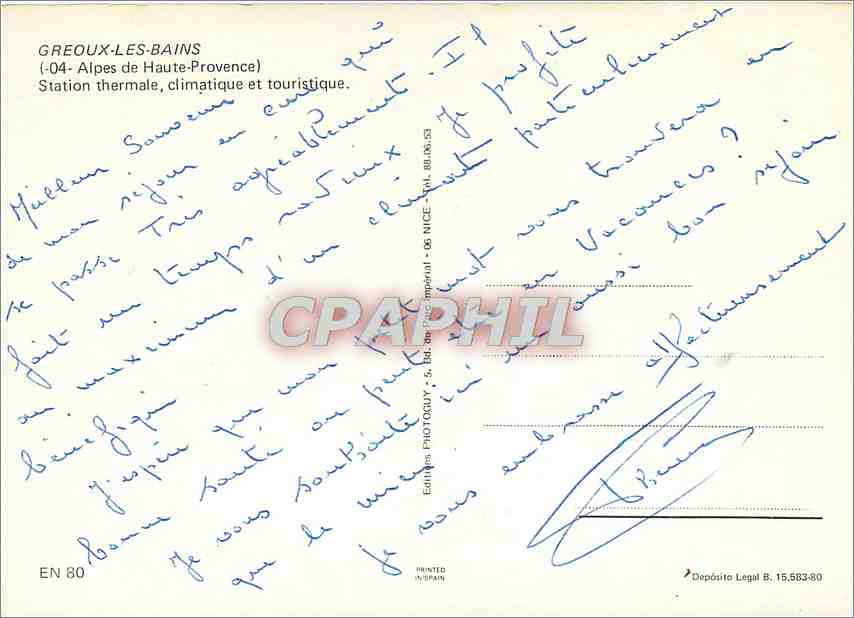 GREOUX-LES-BAINS
(-04- Alpes de Haute-Provence)
Station thermale, climatique et touristique.
Meilleur Souvenir
de mon séjour en cure qui
se passe Très agréablement. Il
fait un temps radieux Je profite
au maximum d'un climat particulièrement
bénéfique
J'espère que mon petit mot vous trouvera en
bonne santé ou peut être en Vacances ?
Je vous souhaite un aussi bon séjour
que le mien
je vous embrasse affectueusement
CPAPHIL
Editions PHOTOGUY - 5, Bd. du Parc Impérial - 06 NICE - Tél. 88.06.53
EN 80
PRINTED
IN SPAIN
Depósito Legal B. 15.583-80